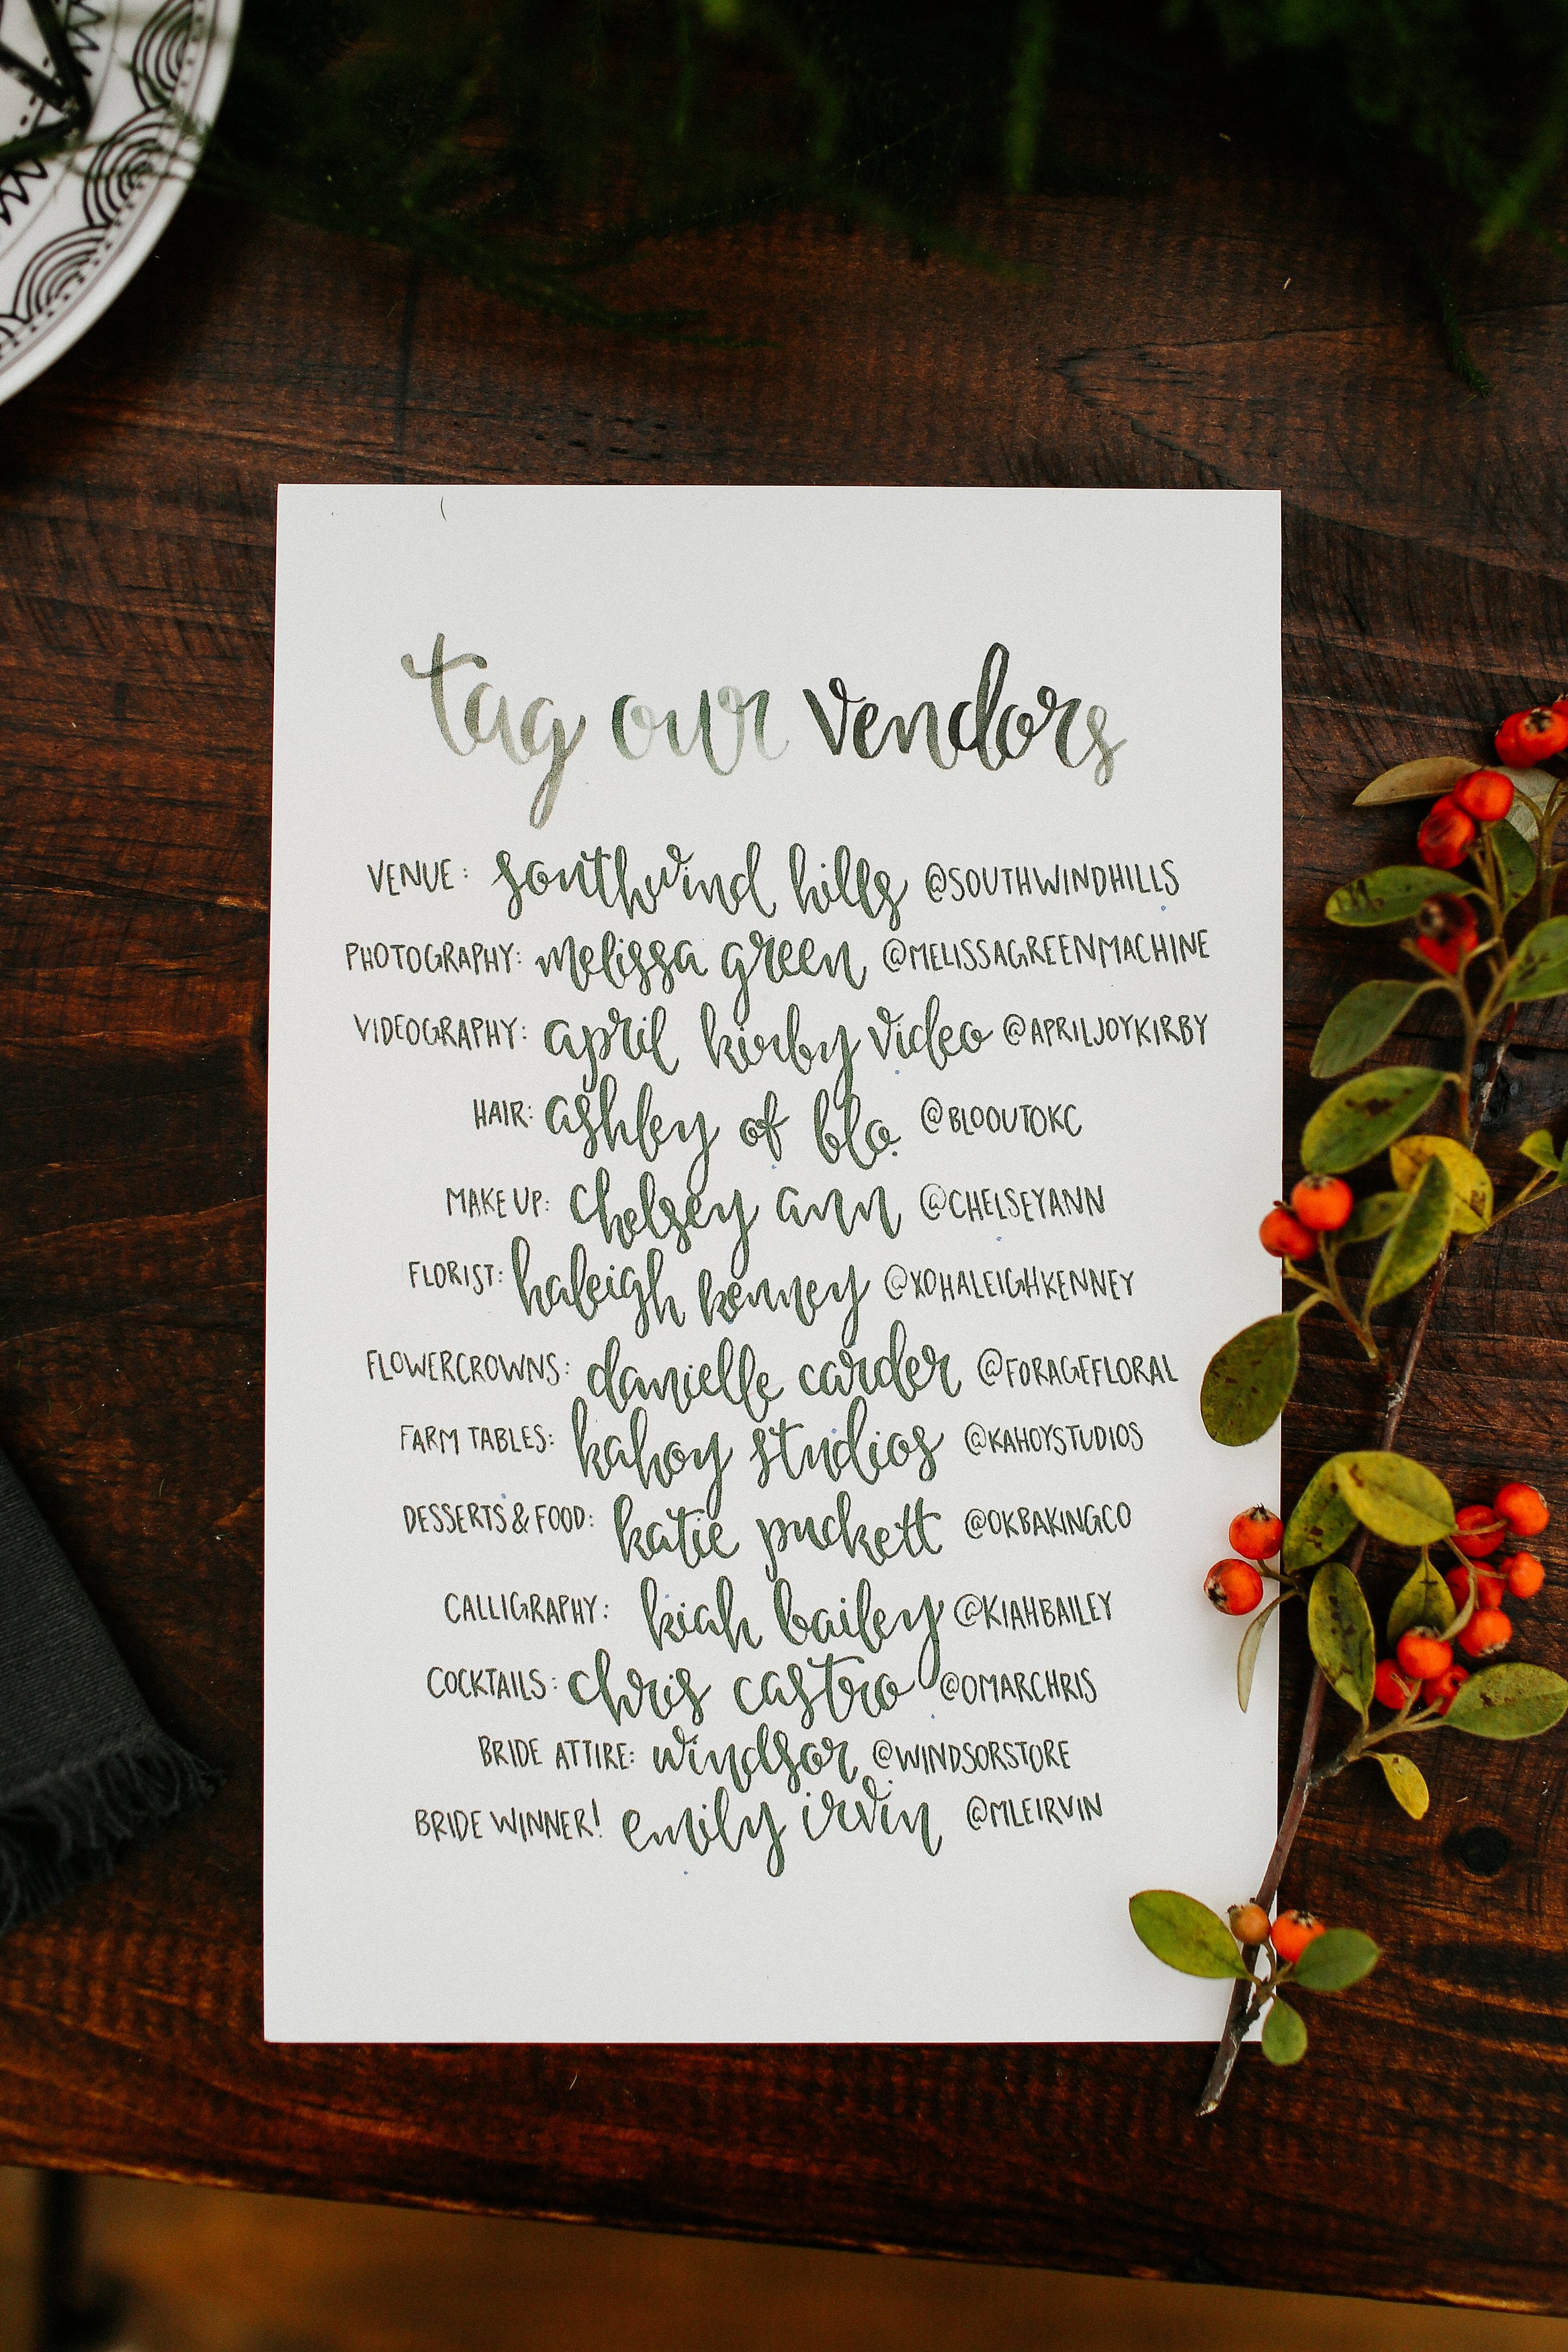 tag our vendors
VENUE: southwind hills @SOUTHWINDHILLS
PHOTOGRAPHY: melissa green @MELISSAGREENMACHINE
VIDEOGRAPHY: april kirby video @APRILJOYKIRBY
HAIR: ashley of blo. @BLOOUTOKC
MAKE UP: chelsey ann @CHELSEYANN
FLORIST: haleigh kenney @XOHALEIGHKENNEY
FLOWERCROWNS: danielle carder @FORAGEFLORAL
FARM TABLES: kahoy studios @KAHOYSTUDIOS
DESSERTS & FOOD: katie puckett @OKBAKINGCO
CALLIGRAPHY: kiah bailey @KIAHBAILEY
COCKTAILS: chris castro @OMARCHRIS
BRIDE ATTIRE: windsor @WINDSORSTORE
BRIDE WINNER! emily irvin @MLEIRVIN